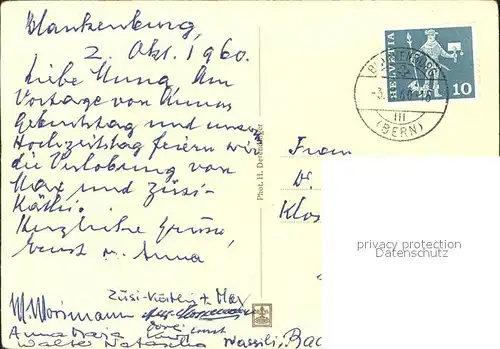 Blankenburg,
2. Okt. 1960.
Liebe Am
Vortage von Annas
Geburtstag und unserm
Hochzeitstag feiern wir
die Verlobung von
Max und Züsi-
Käthi.
Herzliche Grüsse,
Ernst u. Anna
Züsi-Käthi + Max
Anna Maja
Walter Natascha Wassili,
Phot. H.
HELVETIA
10
BLANKENBURG
-3.
III
(BERN)
Frau
Dr.
Klos
privacy protection
Datenschutz